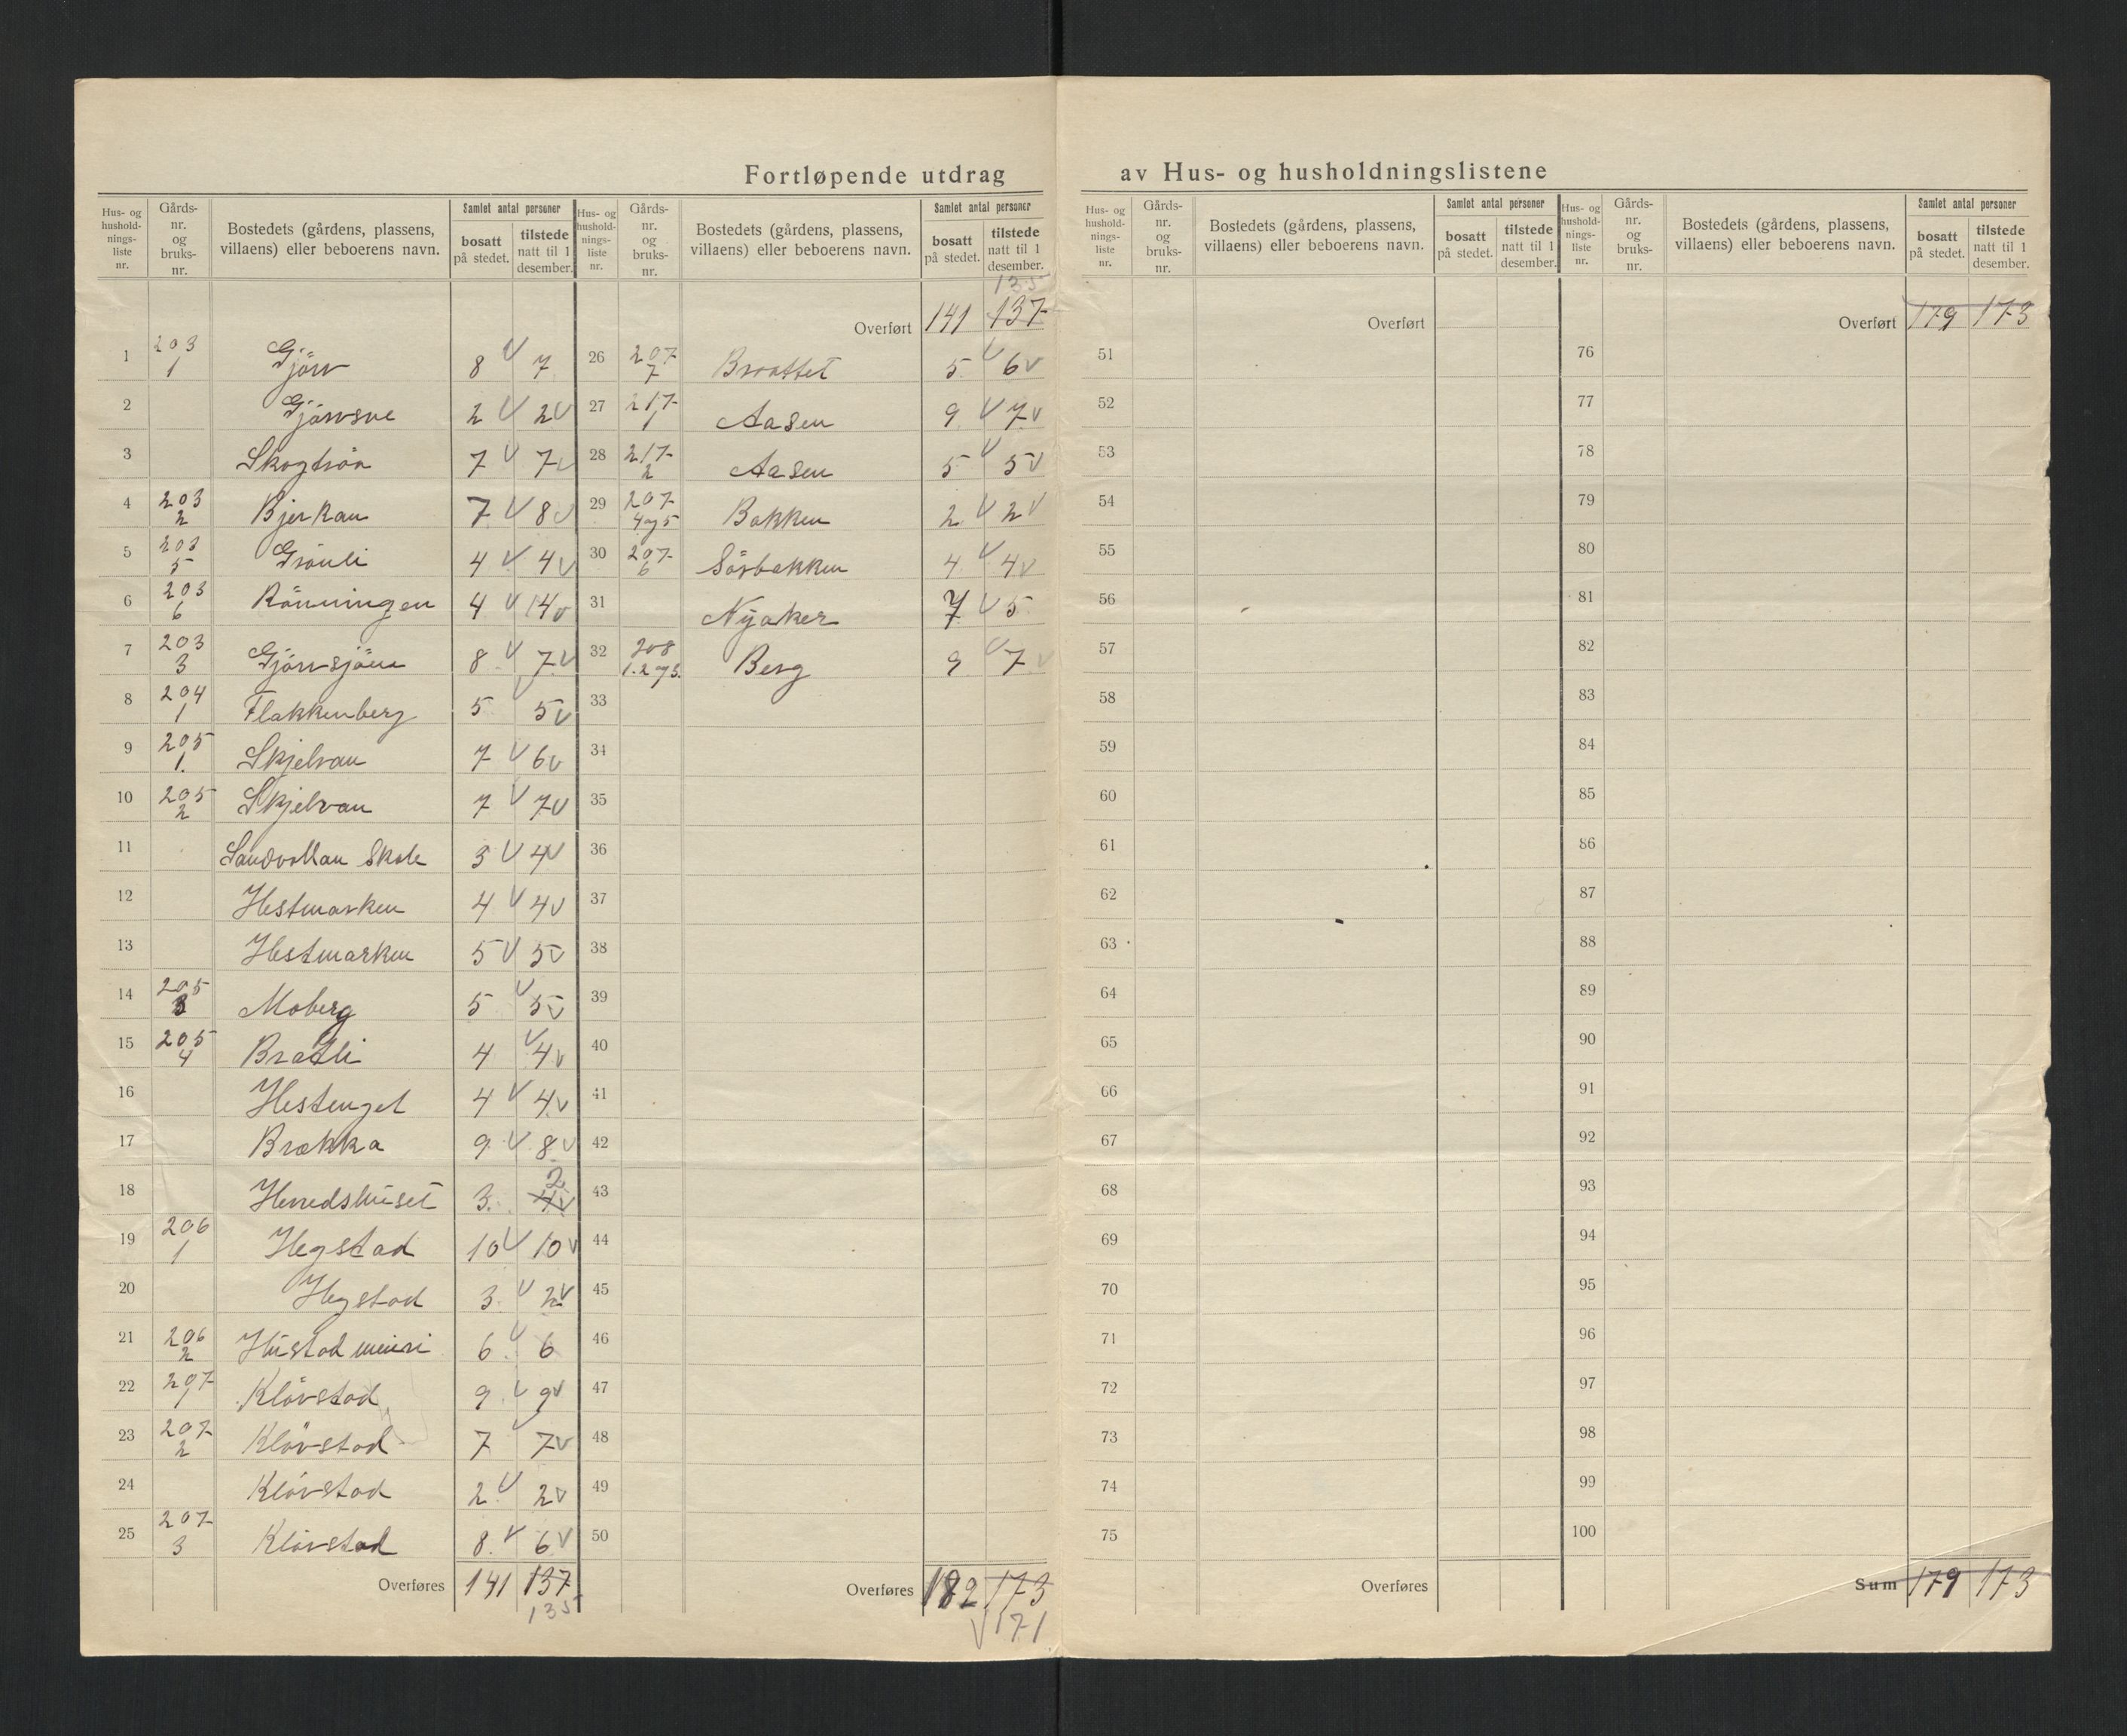 Fortløpende utdrag av Hus- og husholdningslistene
Hus- og hushold-nings-liste nr. | Gårds-nr. og bruks-nr. | Bostedets (gårdens, plassens, villaens) eller beboerens navn. | Samlet antal personer | bosatt på stedet. | tilstede natt til 1 desember.
1 | 203 1 | Gjörv | 8 | 7
2 | Gjörvsve | 2 | 2
3 | Skogtrön | 7 | 7
4 | 203 2 | Bjerkan | 7 | 8
5 | 203 5 | Grönli | 4 | 4
6 | 203 6 | Rönningen | 4 | 4
7 | 203 3 | Gjörvsjöen | 8 | 7
8 | 204 1 | Flakkenberg | 5 | 5
9 | 205 1. | Skjelvan | 7 | 6
10 | 205 2 | Skjelvan | 7 | 7
11 | Sandvollan Skole | 3 | 4
12 | Hestmarken | 4 | 4
13 | Hestmarken | 5 | 5
14 | 205 3 | Moberg | 5 | 5
15 | 205 4 | Bratli | 4 | 4
16 | Hestenget | 4 | 4
17 | Brækka | 9 | 8
18 | Herredshuset | 3. | 4 2
19 | 206 1 | Hegstad | 10 | 10
20 | Hegstad | 3. | 2
21 | 206 2 | Hustad meieri | 6 | 6
22 | 207 1 | Klövstad | 9 | 9
23 | 207 2 | Klövstad | 7 | 7
24 | Klövstad | 2 | 2
25 | 207 3 | Klövstad | 8 | 6
Overføres 141 137 135
Hus- og hushold-nings-liste nr. | Gårds-nr. og bruks-nr. | Bostedets (gårdens, plassens, villaens) eller beboerens navn. | Samlet antal personer | bosatt på stedet. | tilstede natt til 1 desember.
135
Overført 141 137
26 | 207 7 | Brattet | 5 | 6
27 | 217 1 | Aasen | 9 | 7
28 | 217 2 | Aasen | 5 | 5
29 | 207 4 og 5 | Bakken | 2 | 2
30 | 207 6 | Sörbakken | 4 | 4
31 | Nyaker | 7 | 5
32 | 208 1. 2 og 3. | Berg | 9 | 7
33
34
35
36
37
38
39
40
41
42
43
44
45
46
47
48
49
50
Overføres 182 173
171
Hus- og hushold-nings-liste nr. | Gårds-nr. og bruks-nr. | Bostedets (gårdens, plassens, villaens) eller beboerens navn. | Samlet antal personer | bosatt på stedet. | tilstede natt til 1 desember.
Overført
51
52
53
54
55
56
57
58
59
60
61
62
63
64
65
66
67
68
69
70
71
72
73
74
75
Overføres
Hus- og hushold-nings-liste nr. | Gårds-nr. og bruks-nr. | Bostedets (gårdens, plassens, villaens) eller beboerens navn. | Samlet antal personer | bosatt på stedet. | tilstede natt til 1 desember.
Overført 179 173
76
77
78
79
80
81
82
83
84
85
86
87
88
89
90
91
92
93
94
95
96
97
98
99
100
Sum 179 173